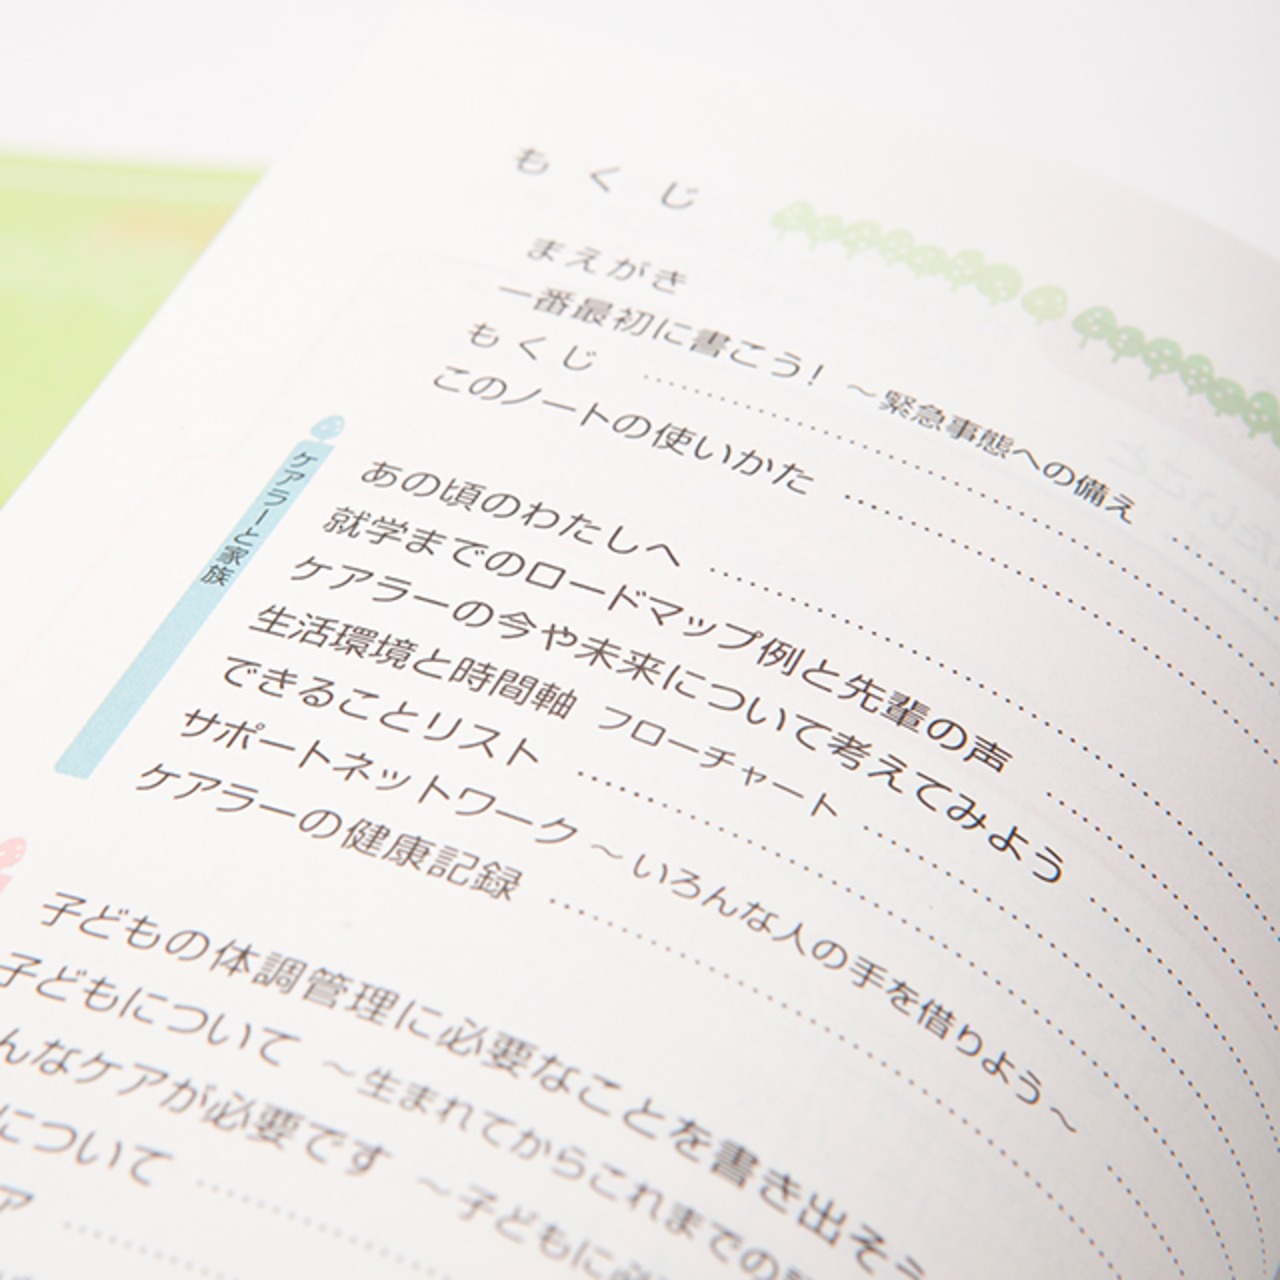 もくじ
まえがき
一番最初に書こう! ～緊急事態への備え
もくじ
このノートの使いかた
ケアラーと家族
あの頃のわたしへ
就学までのロードマップ例と先輩の声
ケアラーの今や未来について考えてみよう
生活環境と時間軸 フローチャート
できることリスト
サポートネットワーク ～いろんな人の手を借りよう～
ケアラーの健康記録
子どもの体調管理に必要なことを書き出そう
子どもについて ～生まれてからこれまでの
んなケアが必要です ～子どもに必
について
ア